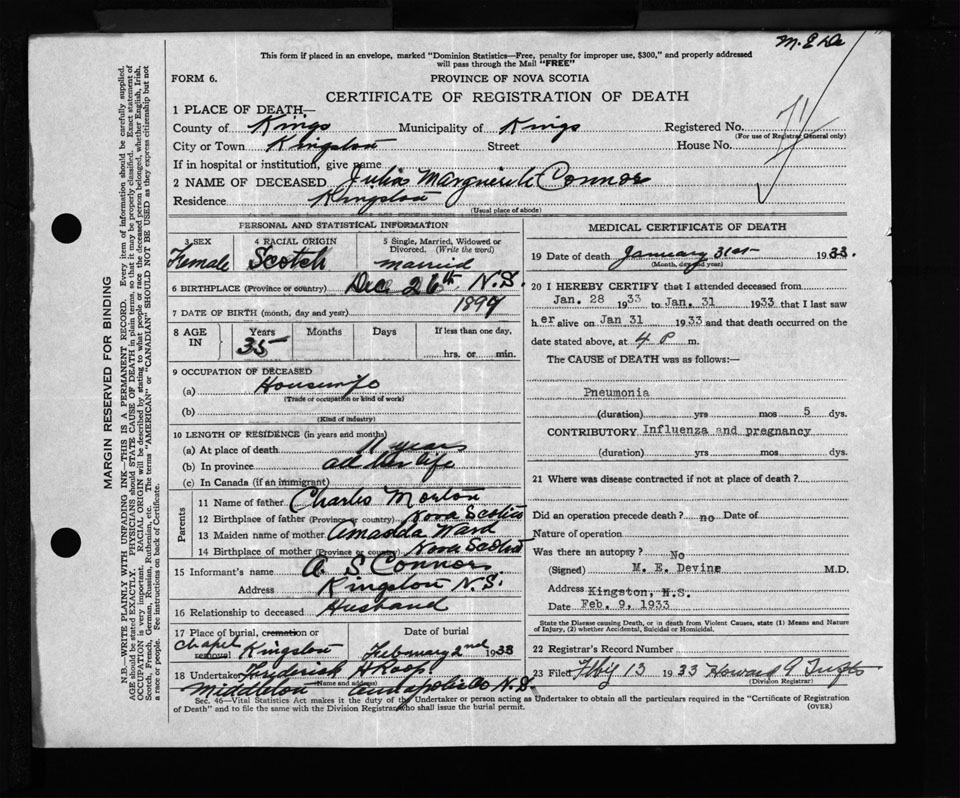 M. E. De
This form if placed in an envelope, marked "Dominion Statistics—Free, penalty for improper use, $300," and properly addressed
will pass through the Mail "FREE"
FORM 6.
PROVINCE OF NOVA SCOTIA
CERTIFICATE OF REGISTRATION OF DEATH
1 PLACE OF DEATH—
County of Kings Municipality of Kings Registered No.
(For use of Registrar General only)
City or Town Kingston Street House No.
If in hospital or institution, give name
2 NAME OF DECEASED Julia Marguerite Connor
Residence Kingston
(Usual place of abode)
PERSONAL AND STATISTICAL INFORMATION
3 SEX 4 RACIAL ORIGIN 5 Single, Married, Widowed or
Divorced. (Write the word)
Female Scotch married
6 BIRTHPLACE (Province or country) Dec 26th N.S.
7 DATE OF BIRTH (month, day and year)
8 AGE IN Years Months Days If less than one day,
35 hrs. or min.
9 OCCUPATION OF DECEASED
(a) Housewife
(Trade or occupation or kind of work)
(b)
(Kind of industry)
10 LENGTH OF RESIDENCE (in years and months)
(a) At place of death 11 years
(b) In province all her life
(c) In Canada (if an immigrant)
Parents
11 Name of father Charles Morton
12 Birthplace of father (Province or country) Nova Scotia
13 Maiden name of mother Amanda Ward
14 Birthplace of mother (Province or country) Nova Scotia
15 Informant's name A S Connor
Address Kingston N.S.
16 Relationship to deceased Husband
17 Place of burial, cremation or Date of burial
Chapel removal Kingston February 2nd 1933
18 Undertaker Frederick A Roop
(Name and address)
Middleton Annapolis Co N.S.
MEDICAL CERTIFICATE OF DEATH
19 Date of death January 31st 1933.
(Month, day and year)
20 I HEREBY CERTIFY that I attended deceased from
Jan. 28 1933 to Jan. 31 1933 that I last saw
her alive on Jan 31 1933 and that death occurred on the
date stated above, at 4 P m.
The CAUSE of DEATH was as follows:—
Pneumonia
(duration) yrs mos 5 dys.
CONTRIBUTORY Influenza and pregnancy
(duration) yrs. mos dys.
21 Where was disease contracted if not at place of death?
Did an operation precede death? no Date of
Nature of operation
Was there an autopsy? No
(Signed) M. E. Devine M.D.
Address Kingston, N.S.
Date Feb. 9, 1933
State the Disease causing Death, or in death from Violent Causes, state (1) Means and Nature
of Injury, (2) whether Accidental, Suicidal or Homicidal.
22 Registrar's Record Number
23 Filed 13 1933 Howard
(Division Registrar)
Sec. 46—Vital Statistics Act makes it the duty of the Undertaker or person acting as Undertaker to obtain all the particulars required in the "Certificate of Registration
of Death" and to file the same with the Division Registrar who shall issue the burial permit.
(OVER)
MARGIN RESERVED FOR BINDING
N.B.—WRITE PLAINLY WITH UNFADING INK—THIS IS A PERMANENT RECORD. Every item of information should be carefully supplied.
AGE should be stated EXACTLY. PHYSICIANS should STATE CAUSE OF DEATH in plain terms, so that it may be properly classified. Exact statement of
OCCUPATION is very important. RACIAL ORIGIN will be described by stating to what people or race the deceased person belonged, whether English, Irish,
Scotch, French, German, Russian, Ruthenian, etc. The terms "AMERICAN" or "CANADIAN" SHOULD NOT BE USED as they express citizenship but not
a race or people. See instructions on back of Certificate.